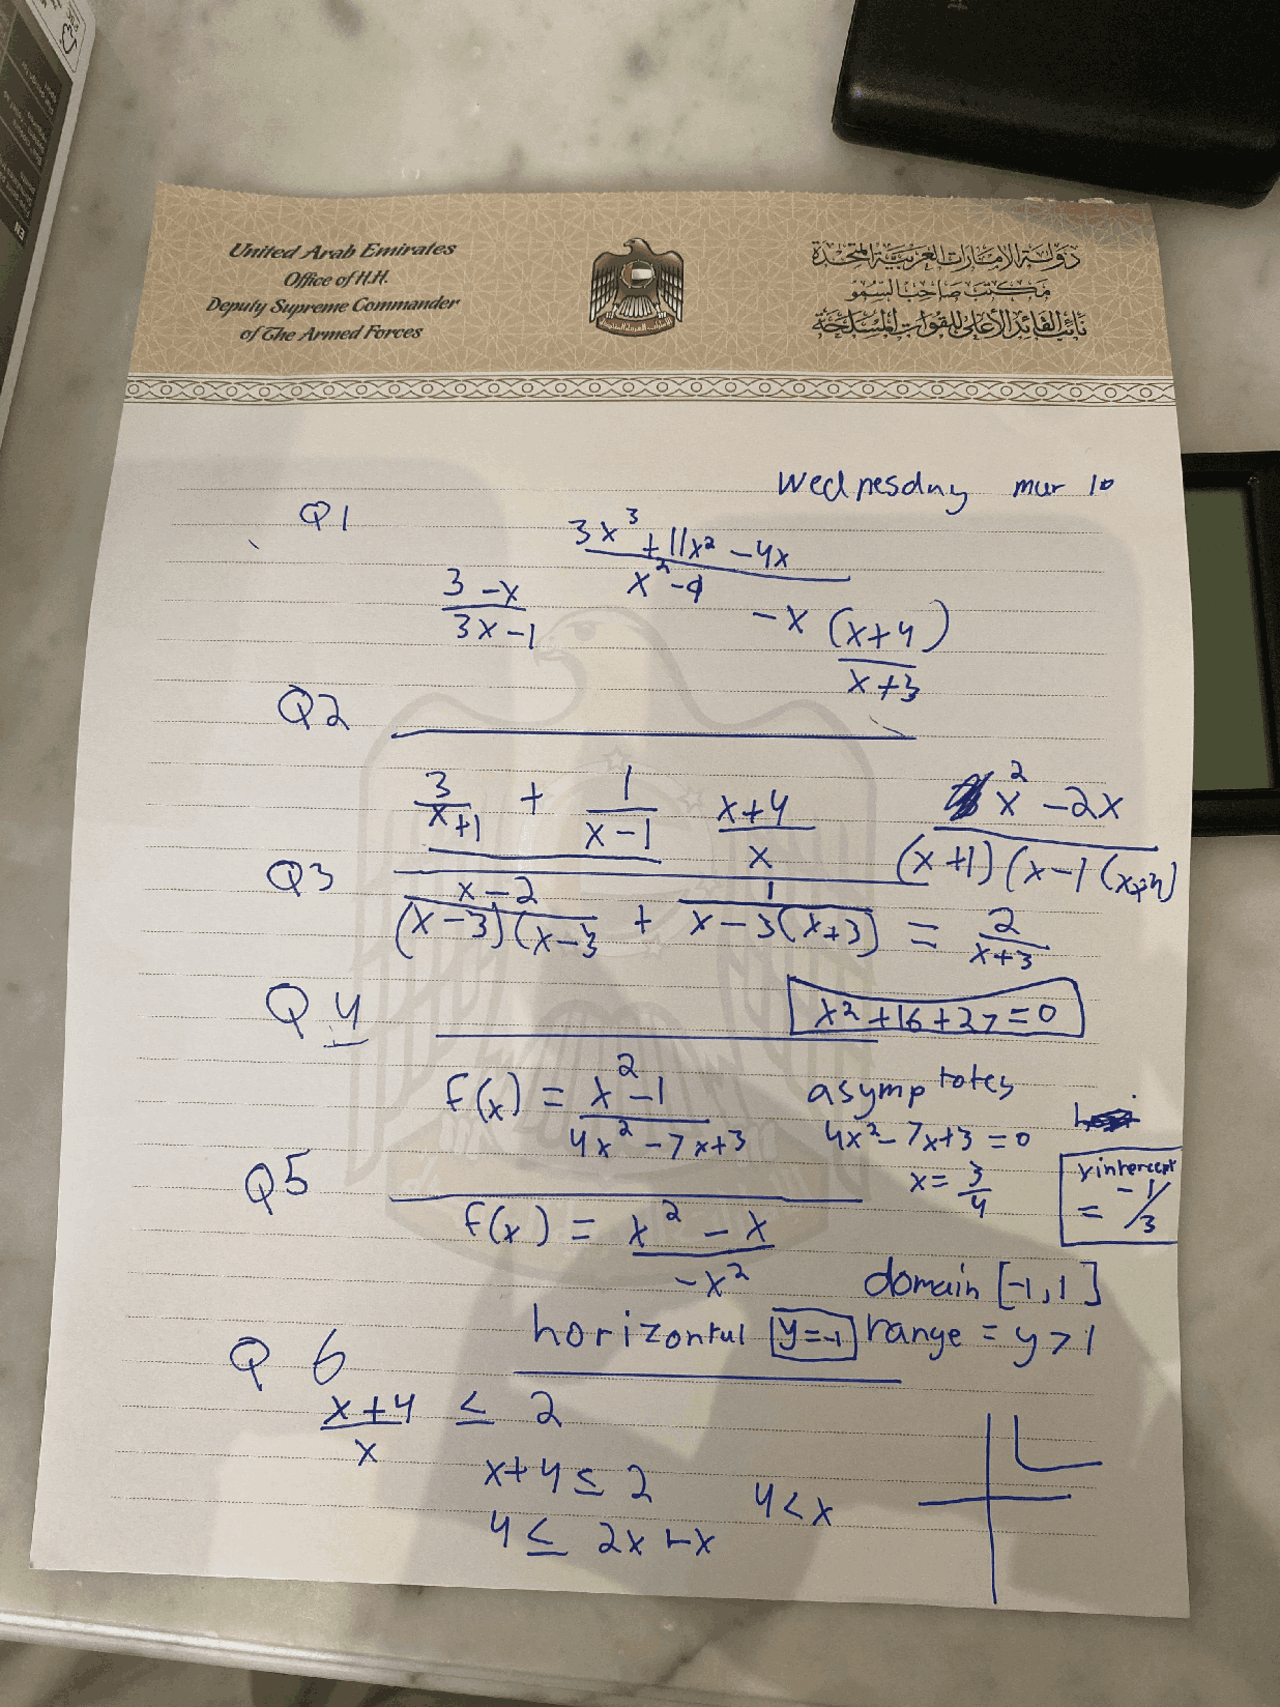 United Arab Emirates
Office of H.H.
Deputy Supreme Commander
of The Armed Forces
دولة الإمارات العربية المتحدة
مكتب صاحب السمو
نائب القائد الأعلى للقوات المسلحة
Wednesday mar 10
Q1
3x³ + 11x² - 4x / x² - 9
3 - x / 3x - 1
- x (x+4) / x+3
Q2
3 / x+1 + 1 / x-1
x+4 / x
x² - 2x / (x+1)(x-1(
Q3
x-2 / (x-3)(x-3 + 1 / x-3(x+3) = 2 / x+3
x² + 16 + 27 = 0
Q4
f(x) = x² - 1 / 4x² - 7x + 3
asymptotes
4x² - 7x + 3 = 0
x = 3/4
yintercept
= -1/3
Q5
f(x) = x² - x / -x²
domain [-1, 1]
horizontal y = -1 range = y > 1
Q 6
x+4 / x ≤ 2
x + 4 ≤ 2
4 < x
4 ≤ 2x - x
EN